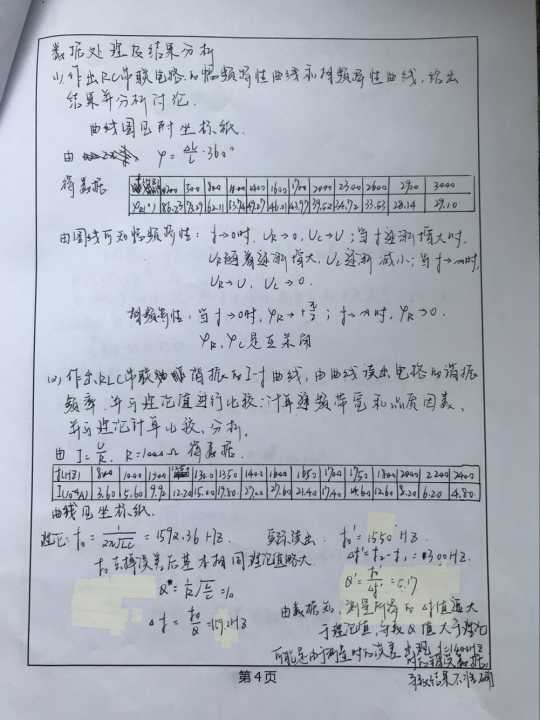 数据处理及结果分析
(1) 作出RC串联电路的幅频特性曲线和相频特性曲线,给出
结果并分析讨论.
曲线图见附坐标纸.
由 φ = ·360°
得数据
300 800 1400 1600 1700 2000 2300 2600 2900 3000
39.52 34.72 33.53 28.14 27.10
由图线可知幅频特性: f→0时, UR→0, UC→U; 当f逐渐增大时,
UR随着逐渐增大, UC逐渐减小; 当f→∞时,
UR→U, UC→0.
相频特性: 当f→0时, φR→+π/2; f→∞时, φR→0.
φR, φC是互余的
(2) 作出RLC串联 谐振的I-f曲线,由曲线读出电路的谐振
频率,并与理论值进行比较;计算通频带宽和品质因数,
并与理论计算比较、分析.
由 I=U/R, R=1000Ω 得数据.
f(HZ) 800 1000 1200 1300 1350 1400 1600 1650 1700 1750 1800 2000 2200 2400
3.60 5.60 9.90 12.20 15.00 19.80 27.00 27.60 21.40 17.40 14.60 12.60 8.20 6.20 4.80
曲线见坐标纸.
理论: f0 = 1/2π√LC = 1592.36 HZ. 实际读出: f0' = 1550 HZ.
f0 去掉误差后基本相同 理论值略大. Δf' = f2 - f1 = 300HZ.
Q = 1/R √L/C = 10 Q' = f0'/Δf' = 5.17
Δf = f0/Q = 159.2HZ 由数据知,测量所得的Δf值远大
于理论值,导致Q值大于理论
可能是由于测量时的误差 f=1400HZ
时的错误数据,
导致结果不准确
第4页